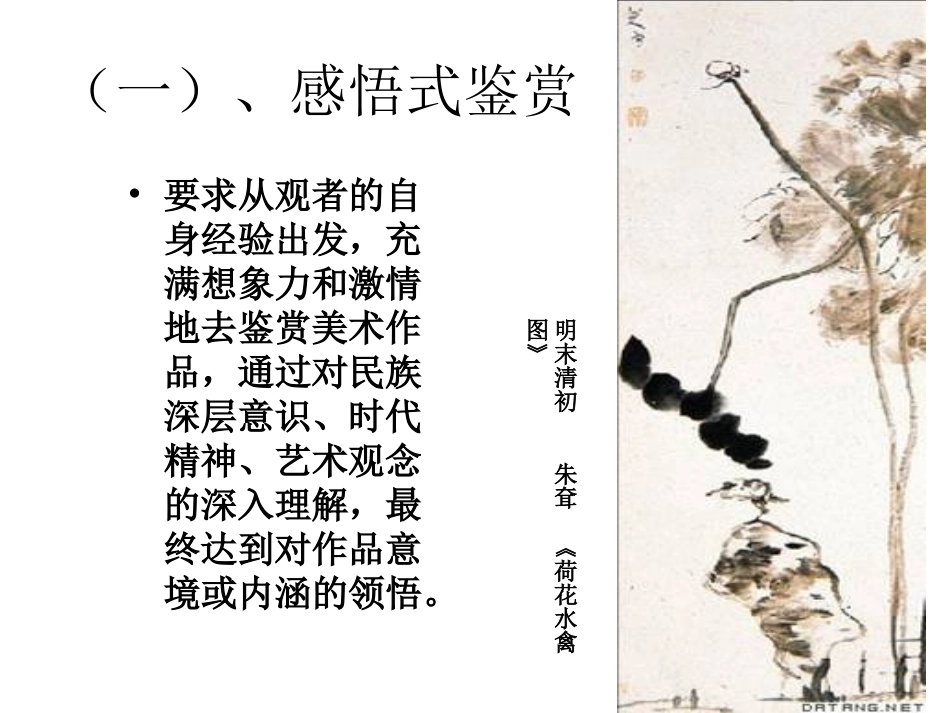 （一）、感悟式鉴赏
• 要求从观者的自
身经验出发，充
满想象力和激情
地去鉴赏美术作
品，通过对民族
深层意识、时代
精神、艺术观念
的深入理解，最
终达到对作品意
境或内涵的领悟。
明末清初 朱耷 《荷花水禽
图》
DATANG.NET